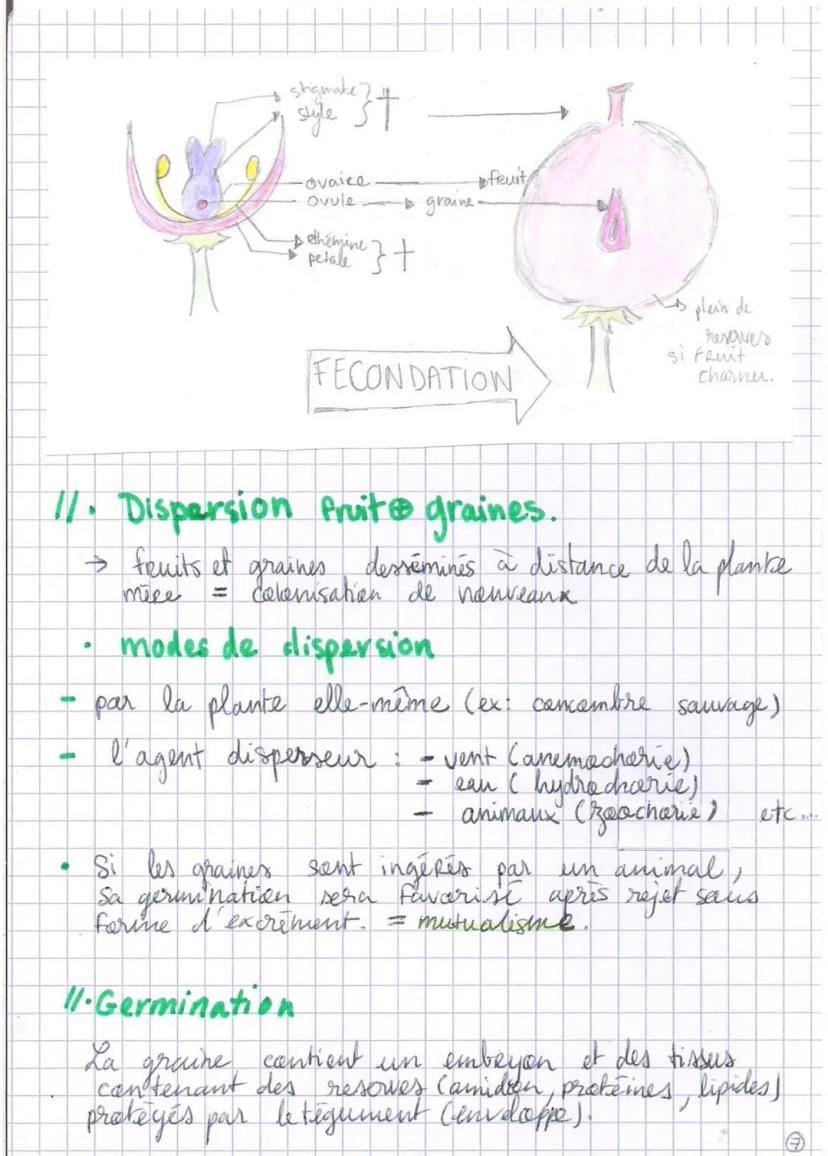 stigmate } †
style
ovaire → fruit
ovule → graine
éthémine } †
petale
plein de
reserves
si FRuit
charnu.
FECONDATION
//. Dispersion fruit⊕ graines.
→ fruits et graines desséminés à distance de la plante
mère = colonisation de nouveaux
• modes de dispersion
- par la plante elle-même (ex: concombre sauvage)
- l'agent disperseur : - vent (anemochorie)
- eau (hydrochorie)
- animaux (zoochorie) etc...
• Si les graines sont ingérés par un animal,
Sa germination sera favorisé après rejet sous
forme d'excrément. = mutualisme.
//. Germination
La graine contient un embryon et des tissus
contenant des reserves (amidon, protéines, lipides)
protégés par le tégument (enveloppe).
7